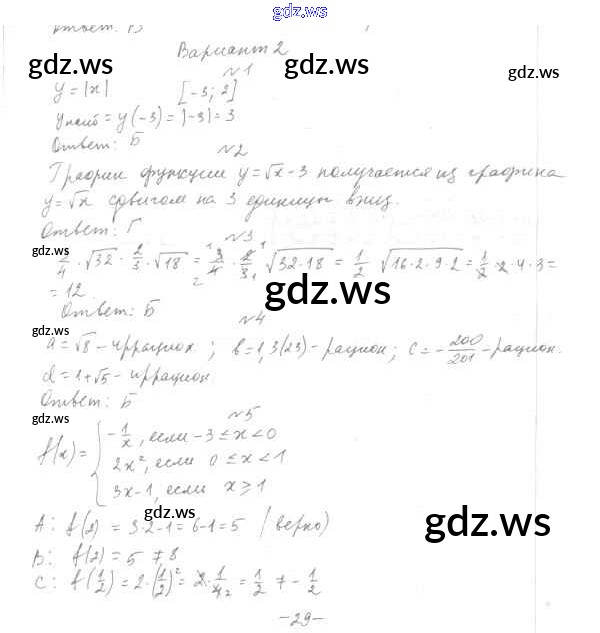 gdz.ws
Ответ: В
Вариант 2
gdz.ws gdz.ws gdz.ws
№1
y = |x| [-3; 2]
yнаиб = y(-3) = |-3| = 3
Ответ: Б
№2
График функции y = √x - 3 получается из графика
y = √x сдвигом на 3 единицы вниз.
Ответ: Г
№3
gdz.ws
3/4 · √32 · 2/3 · √18 = 3/4 · 2/3 √(32·18) = 1/2 √(16·2·9·2) = 1/2 · 2 · 4 · 3 =
= 12
gdz.ws
Ответ: Б
№4
gdz.ws
a = √8 - иррацион; b = 1,3(23) - рацион; c = -200/201 - рацион.
d = 1 + √5 - иррацион.
Ответ: Б
gdz.ws
№5
f(x) = { -1/x, если -3 ≤ x < 0
2x², если 0 ≤ x < 1
3x - 1, если x ≥ 1
gdz.ws gdz.ws
A: f(2) = 3·2 - 1 = 6 - 1 = 5 (верно)
B: f(2) = 5 ≠ 8
gdz.ws
C: f(1/2) = 2·(1/2)² = 2·1/4 = 1/2 ≠ -1/2
-29-